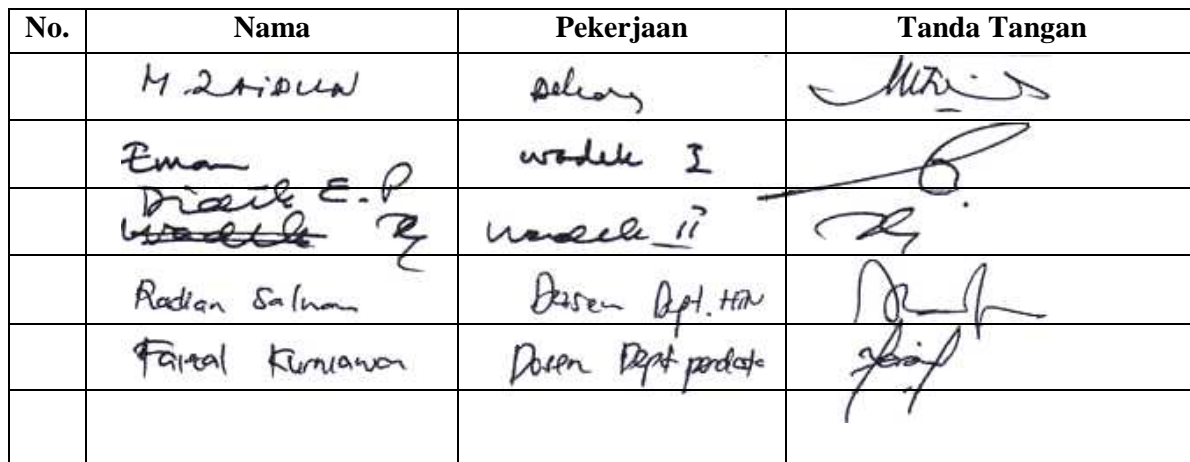 No. Nama Pekerjaan Tanda Tangan
M. ZAIDUN Dekan
Eman wadek I
Didik E.P
wadek wadek II
Radian Salman Dosen Dept. HTN
Faizal Kurniawan Dosen Dept perdata